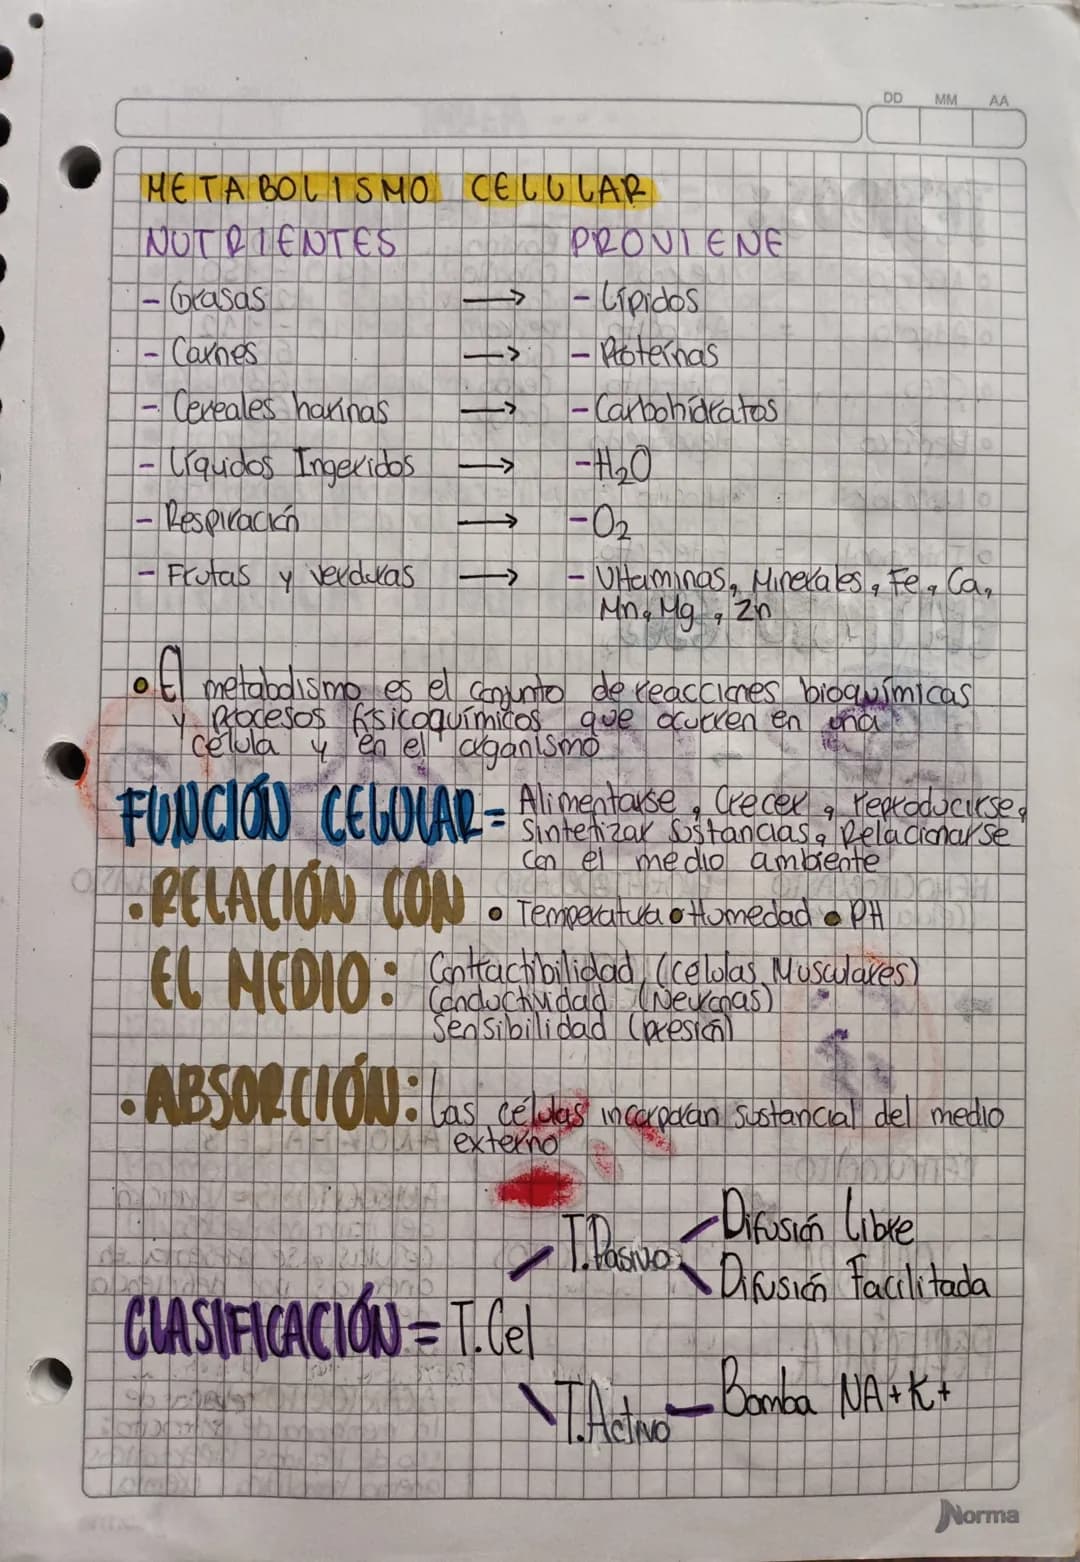 DD MM AA
METABOLISMO CELULAR
NUTRIENTES PROVIENE
- Grasas → - Lípidos
- Carnes → - Proteínas
- Cereales harinas → - Carbohidratos
- Líquidos Ingeridos → - H₂O
- Respiración → - O₂
- Frutas y verduras → - Vitaminas, Minerales, Fe, Ca,
Mn, Mg, Zn
• El metabolismo es el conjunto de reacciones bioquímicas
y procesos fisicoquímicos que ocurren en una
célula y en el organismo
FUNCIÓN CELULAR = Alimentarse, Crecer, reproducirse,
Sintetizar sustancias, Relacionarse
con el medio ambiente
• RELACIÓN CON • Temperatura • Humedad • PH
EL MEDIO: Contractibilidad (células Musculares)
Conductividad (Neuronas)
Sensibilidad (presión)
• ABSORCIÓN: Las células incorporan sustancial del medio
externo
T. Pasivo Difusión Libre
Difusión Facilitada
CLASIFICACIÓN = T. Cel
T. Activo - Bomba NA+K+
Norma